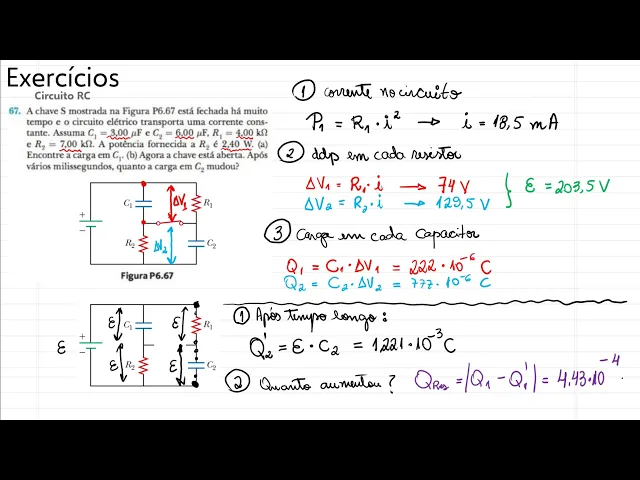 Exercícios
Circuito RC
67. A chave S mostrada na Figura P6.67 está fechada há muito
tempo e o circuito elétrico transporta uma corrente cons-
tante. Assuma C₁ = 3,00 μF e C₂ = 6,00 μF, R₁ = 4,00 kΩ
e R₂ = 7,00 kΩ. A potência fornecida a R₂ é 2,40 W. (a)
Encontre a carga em C₁. (b) Agora a chave está aberta. Após
vários milissegundos, quanto a carga em C₂ mudou?
C₁ ΔV₁ R₁
R₂ ΔV₂ C₂
Figura P6.67
ε ε C₁ ε R₁
ε R₂ ε C₂
1 corrente no circuito
P₁ = R₁ · i² → i = 18,5 mA
2 ddp em cada resistor
ΔV₁ = R₁ · i → 74 V
ΔV₂ = R₂ · i → 129,5 V
ε = 203,5 V
3 Carga em cada capacitor
Q₁ = C₁ · ΔV₁ = 222 · 10⁻⁶ C
Q₂ = C₂ · ΔV₂ = 777 · 10⁻⁶ C
1 Após tempo longo :
Q₂' = ε · C₂ = 1221 · 10⁻³ C
2 Quanto aumentou ? Q_Res = |Q₁ - Q₁'| = 4,43 · 10⁻⁴